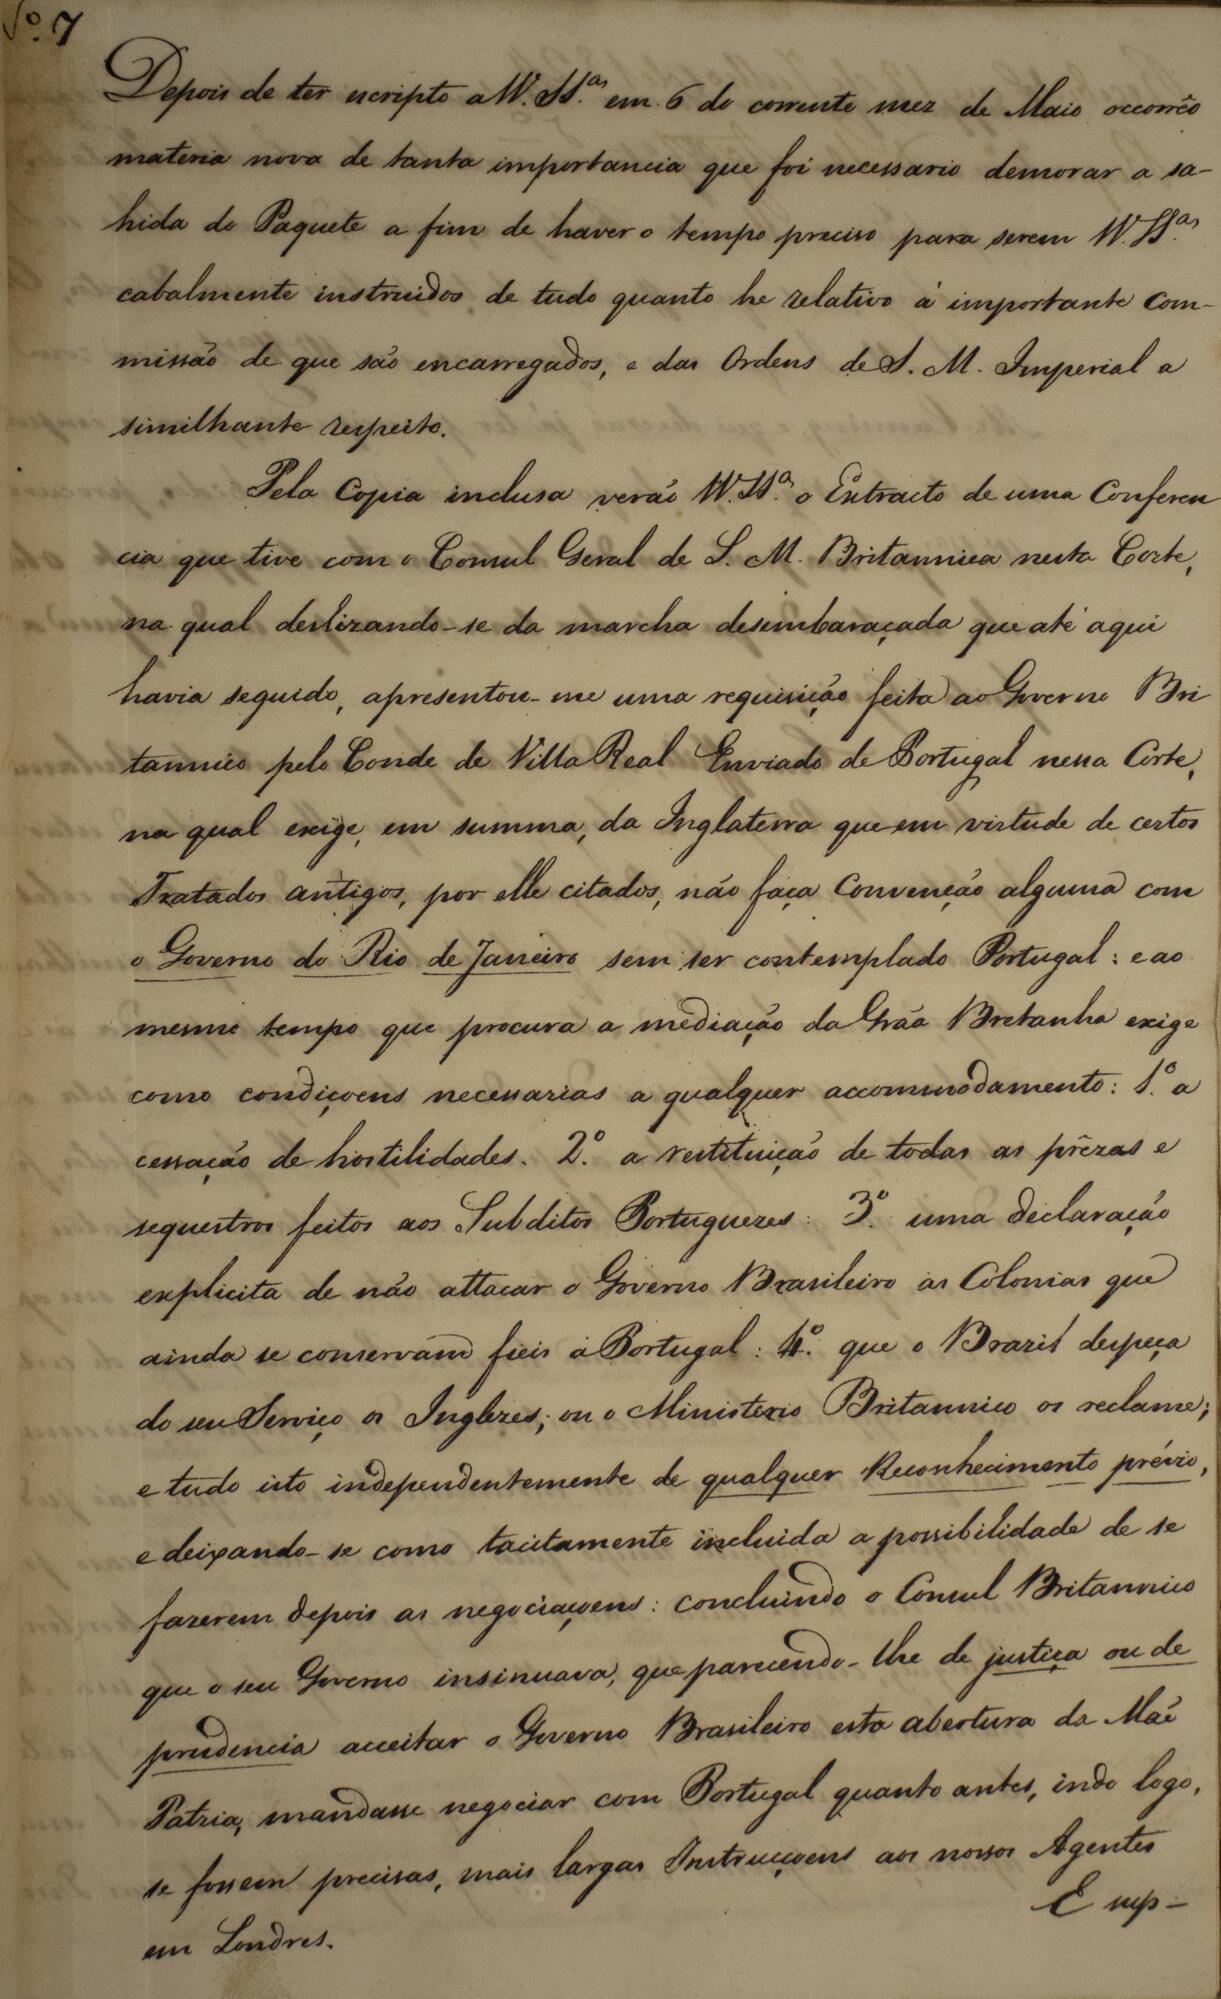 Nº 7
Depois de ter escripto a VV. SSªs em 6 do corrente mez de Maio occorrêo
materia nova de tanta importancia que foi necessario demorar a sa-
hida do Paquete a fim de haver o tempo preciso para serem VV. SSªs
cabalmente instruidos de tudo quanto he relativo á importante Com-
missão de que são encarregados, e das Ordens de S. M. Imperial a
similhante respeito.
Pela Copia inclusa verão VV. SSªs o Extracto de uma Conferen
cia que tive com o Consul Geral de S. M. Britannica nesta Corte,
na qual deslizando-se da marcha desembaraçada que até aqui
havia seguido, apresentou-me uma requisição feita ao Governo Bri
tannico pelo Conde de Villa Real Enviado de Portugal nessa Corte,
na qual exige, em summa, da Inglaterra que em virtude de certos
Tratados antigos, por elle citados, não faça Convenção alguma com
o Governo do Rio de Janeiro sem ser contemplado Portugal: e ao
mesmo tempo que procura a mediação da Grãa Bretanha exige
como condiçoens necessarias a qualquer accommodamento: 1º. a
cessação de hostilidades. 2º. a restituição de todas as prêzas e
sequestros feitos aos Subditos Portuguezes: 3º. uma declaração
explicita de não attacar o Governo Brasileiro as Colonias que
ainda se conservam fieis a Portugal: 4º. que o Brazil despeça
do seu Serviço os Inglezes; ou o Ministerio Britannico os reclame;
e tudo isto independentemente de qualquer Reconhecimento prévio,
e deixando-se como tacitamente incluida a possibilidade de se
fazerem depois as negociaçoens: concluindo o Consul Britannico
que o seu Governo insinuava, que parecendo-lhe de justiça ou de
prudencia acceitar o Governo Brasileiro esta abertura da Mãe
Patria, mandasse negociar com Portugal quanto antes, indo logo,
se fossem precisas, mais largas Instrucçoens aos nossos Agentes
em Londres.
E sup-